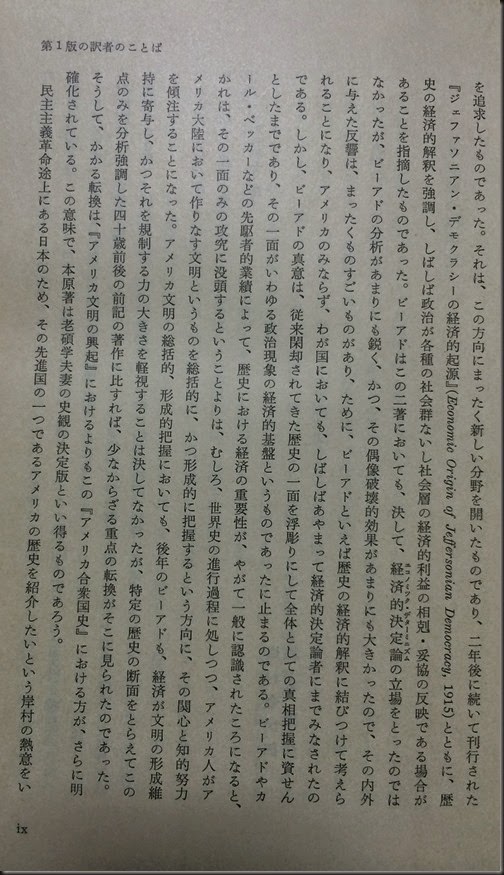 第1版の訳者のことば
を追求したものであった。それは、この方向にまったく新しい分野を開いたものであり、二年後に続いて刊行された
『ジェファソニアン・デモクラシーの経済的起源』(Economic Origin of Jeffersonian Democracy, 1915)とともに、歴
史の経済的解釈を強調し、しばしば政治が各種の社会群ないし社会層の経済的利益の相剋・妥協の反映である場合が
あることを指摘したものであった。ビーアドはこの二著においても、決して、経済的決定論の立場をとったのでは
エコノミック・デターミニズム
なかったが、ビーアドの分析があまりにも鋭く、かつ、その偶像破壊的効果があまりにも大きかったので、その内外
に与えた反響は、まったくものすごいものがあり、ために、ビーアドといえば歴史の経済的解釈に結びつけて考えら
れることになり、アメリカのみならず、わが国においても、しばしばあやまって経済的決定論者にまでみなされたの
である。しかし、ビーアドの真意は、従来閑却されてきた歴史の一面を浮彫りにして全体としての真相把握に資せん
としたまでであり、その一面がいわゆる政治現象の経済的基盤というものであったに止まるのである。ビーアドやカ
ール・ベッカーなどの先駆者的業績によって、歴史における経済の重要性が、やがて一般に認識されたころになると、
かれは、その一面のみの攻究に没頭するということよりは、むしろ、世界史の進行過程に処しつつ、アメリカ人がア
メリカ大陸において作りなす文明というものを総括的に、かつ形成的に把握するという方向に、その関心と知的努力
を傾注することになった。アメリカ文明の総括的、形成的把握においても、後年のビーアドも、経済が文明の形成維
持に寄与し、かつそれを規制する力の大きさを軽視することは決してなかったが、特定の歴史の断面をとらえてこの
点のみを分析強調した四十歳前後の前記の著作に比すれば、少なからざる重点の転換がそこに見られたのであった。
そうして、かかる転換は、『アメリカ文明の興起』におけるよりもこの『アメリカ合衆国史』における方が、さらに明
確化されている。この意味で、本原著は老碩学夫妻の史観の決定版といい得るものであろう。
民主主義革命途上にある日本のため、その先進国の一つであるアメリカの歴史を紹介したいという岸村の熱意をい
ix